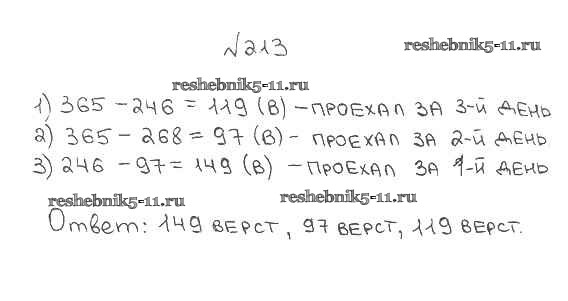 №213
reshebnik5-11.ru
reshebnik5-11.ru
1) 365 - 246 = 119 (В) - ПРОЕХАЛ ЗА 3-Й ДЕНЬ
2) 365 - 268 = 97 (В) - ПРОЕХАЛ ЗА 2-Й ДЕНЬ
3) 246 - 97 = 149 (В) - ПРОЕХАЛ ЗА 1-Й ДЕНЬ
reshebnik5-11.ru
reshebnik5-11.ru
Ответ: 149 ВЕРСТ, 97 ВЕРСТ, 119 ВЕРСТ.